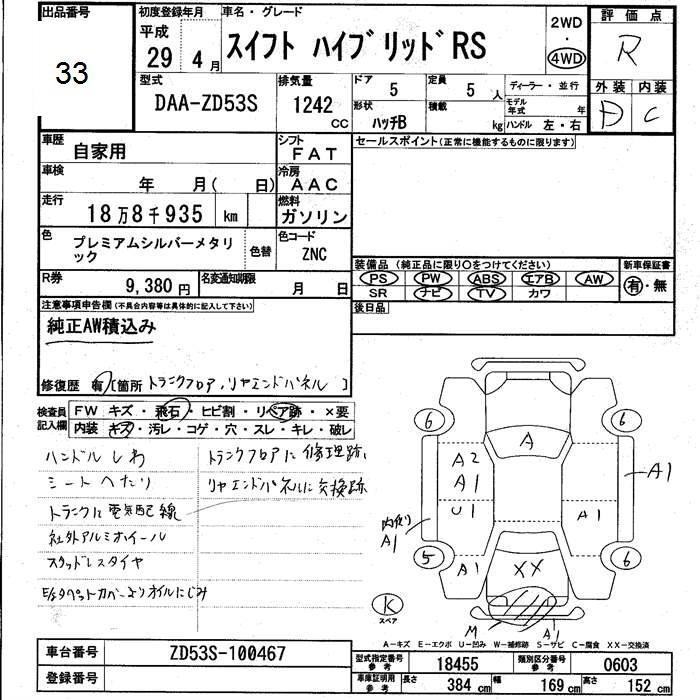 出品番号
33
初度登録年月
平成
29 4月
車名・グレード
スイフト ハイブリッドRS
2WD
・
4WD
評価点
R
外装 内装
D C
型式
DAA-ZD53S
排気量
1242
CC
ドア
5
定員
5 人
形状
ハッチB
積載
kg
ディーラー・並行
モデル年式 年
ハンドル 左・右
車歴
自家用
シフト
FAT
車検
年 月( 日)
冷房
AAC
走行
18万8千935 km
燃料
ガソリン
色
プレミアムシルバーメタリ
ック
色替
色コード
ZNC
R券
9,380円
名変通知期限
月 日
セールスポイント(正常に機能するものに限ります)
装備品 (純正品に限り○をつけてください)
PS PW ABS エアB AW
SR ナビ TV カワ
新車保証書
有・無
後日品
注意事項申告欄(不具合内容等は具体的に記入して下さい)
純正AW積込み
修復歴 有 [箇所 トランクフロア,リヤエンドパネル ]
検査員
記入欄
FW キズ・飛石・ヒビ割・リペア跡・×要
内装 キズ・汚レ・コゲ・穴・スレ・キレ・破レ
ハンドルしわ
シートへたり
トランクに電気配線
社外アルミホイール
スタッドレスタイヤ
E/gタペットカバーよりオイルにじみ
トランクフロアに修理跡
リヤエンドパネルに交換跡
6 6
A
A2
A1
U1
A1
A1
A1
A1
5 6
XX
K
スペア
M
A1
A-キズ E-エクボ U-凹み W-補修跡 S-サビ C-腐食 XX-交換済
車台番号
ZD53S-100467
登録番号
型式指定番号
参考
18455
類別区分番号
参考
0603
車庫証明用
参考
長さ 384cm
幅 169cm
高さ 152cm